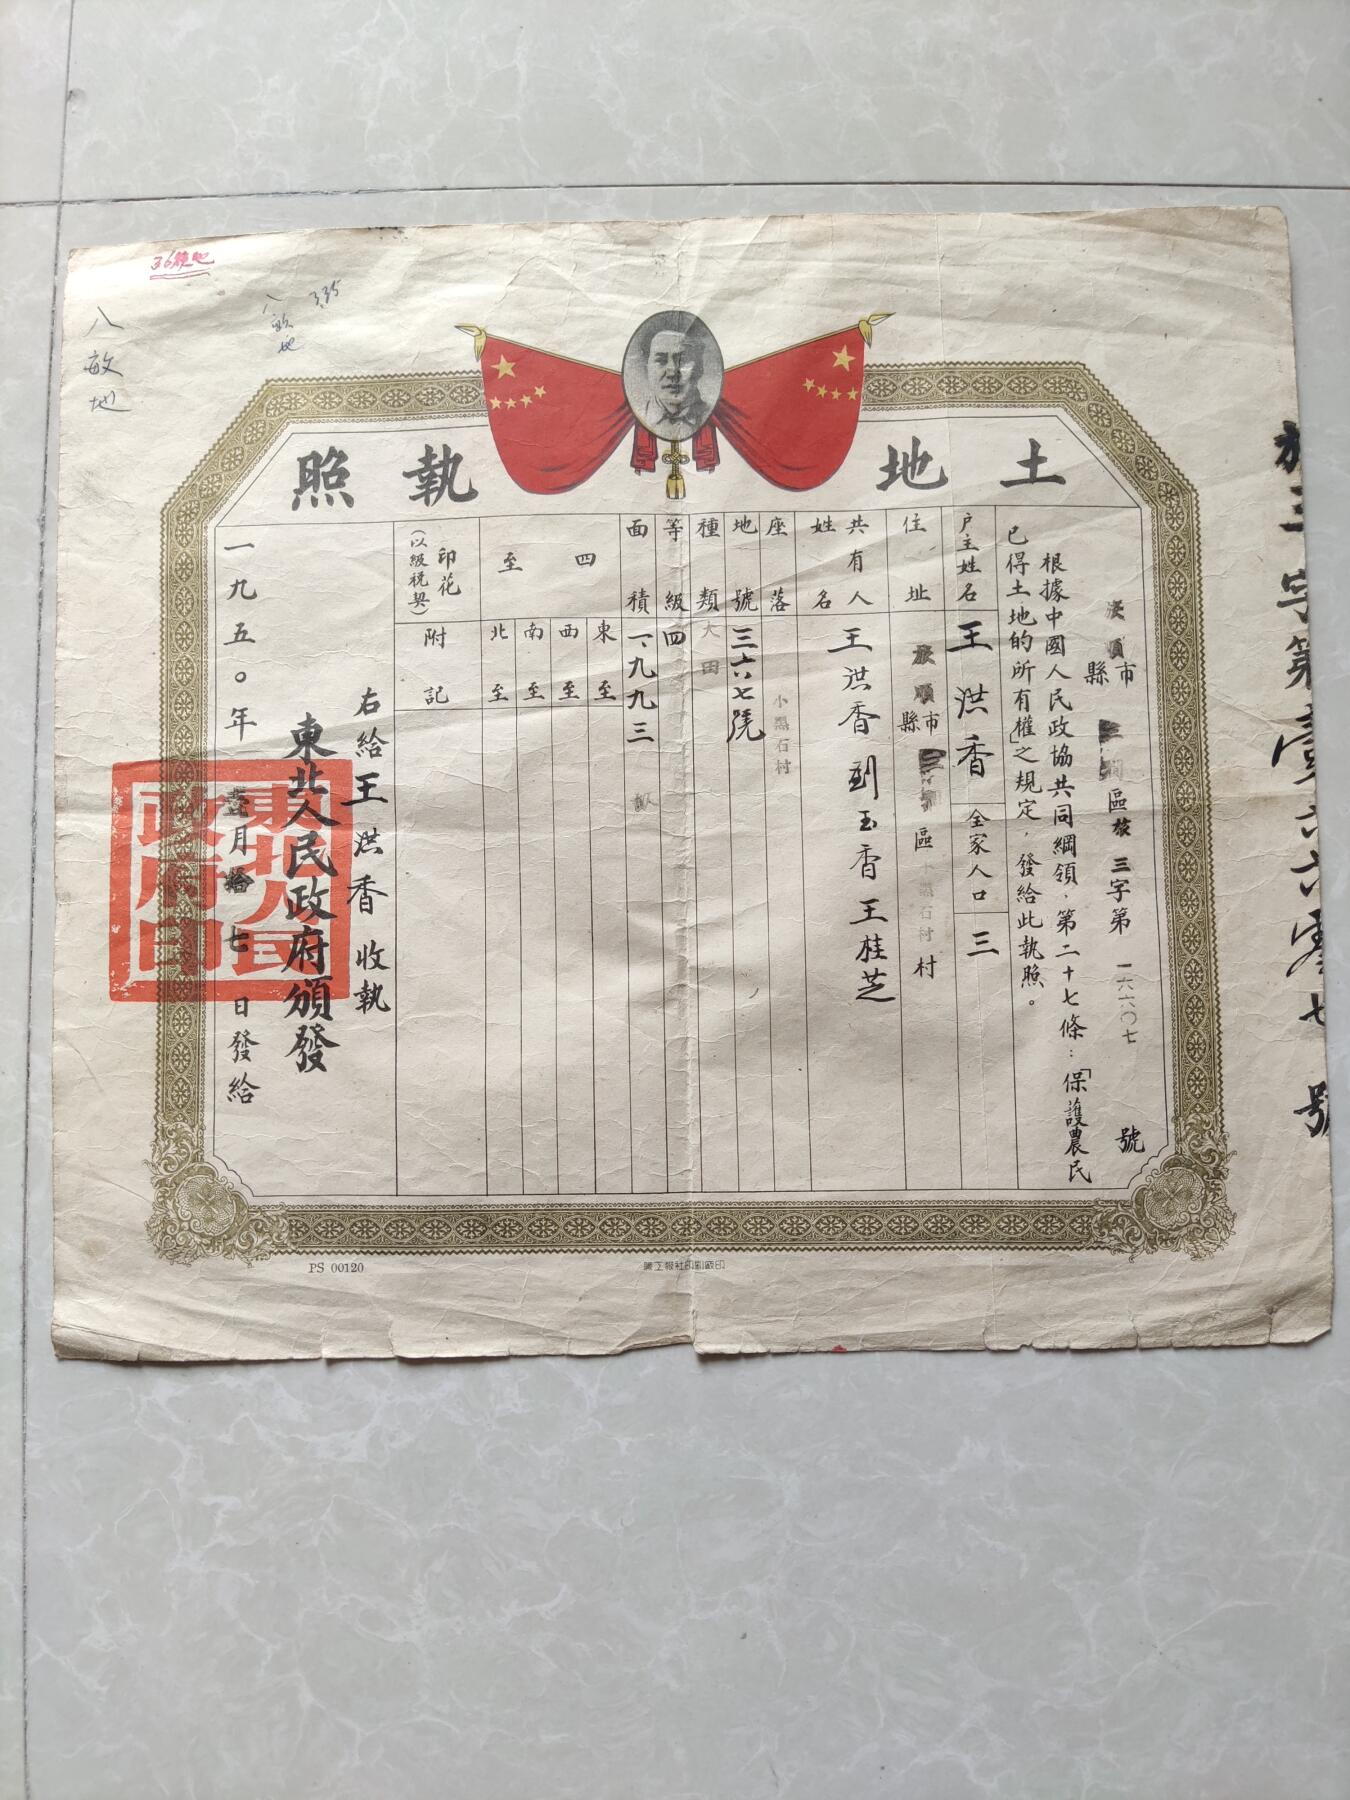 36號地
八敏地
八畝地
335
土地執照
旅順市縣三澗區旅三字第一六六〇七號
根據中國人民政協共同綱領、第二十七條：「保護農民
已得土地的所有權」之規定，發給此執照。
戶主姓名 王洪香 全家人口 三
住址 旅順市縣三澗區小黑石村村
共有人姓名 王洪香 劉玉香 王桂芝
座落 小黑石村
地號 三六六七號
種類 大田
等級 四
面積 一、九九三 畝
四至
東至
西至
南至
北至
印花
（以級稅契）
附記
右給王洪香 收執
東北人民政府頒發
一九五〇年壹月拾七日發給
東北人民政府印
旅三字第壹六六零七號
PS 00120
職工報社印刷廠印